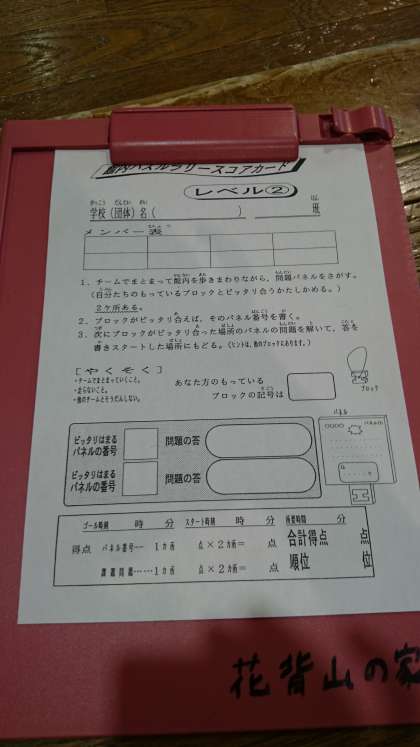 館内パズルラリースコアカード
レベル②
学校（団体）名（　　　　　　　）　　　　班
メンバー表
1．チームでまとまって館内を歩きまわりながら、問題パネルをさがす。
（自分たちのもっているブロックとピッタリ合うかたしかめる。）
2ヶ所ある。
2．ブロックがピッタリ合えば、そのパネル番号を書く。
3．次にブロックがピッタリ合った場所のパネルの問題を解いて、答を
書きスタートした場所にもどる。（ヒントは、他のブロックにあります。）
［やくそく］
・チームでまとまっていくこと。
・走らないこと。
・他のチームとそうだんしない。
あなた方のもっている
ブロックの記号は
ブロック
パネル
ピッタリはまる
パネルの番号
問題の答
ピッタリはまる
パネルの番号
問題の答
ゴール時刻　時　分　スタート時刻　時　分　所要時間　分
得点　パネル番号…　1ヵ所　点×2ヵ所＝　点　合計得点　点
課題問題……1ヵ所　点×2ヵ所＝　点　順位　位
花背山の家